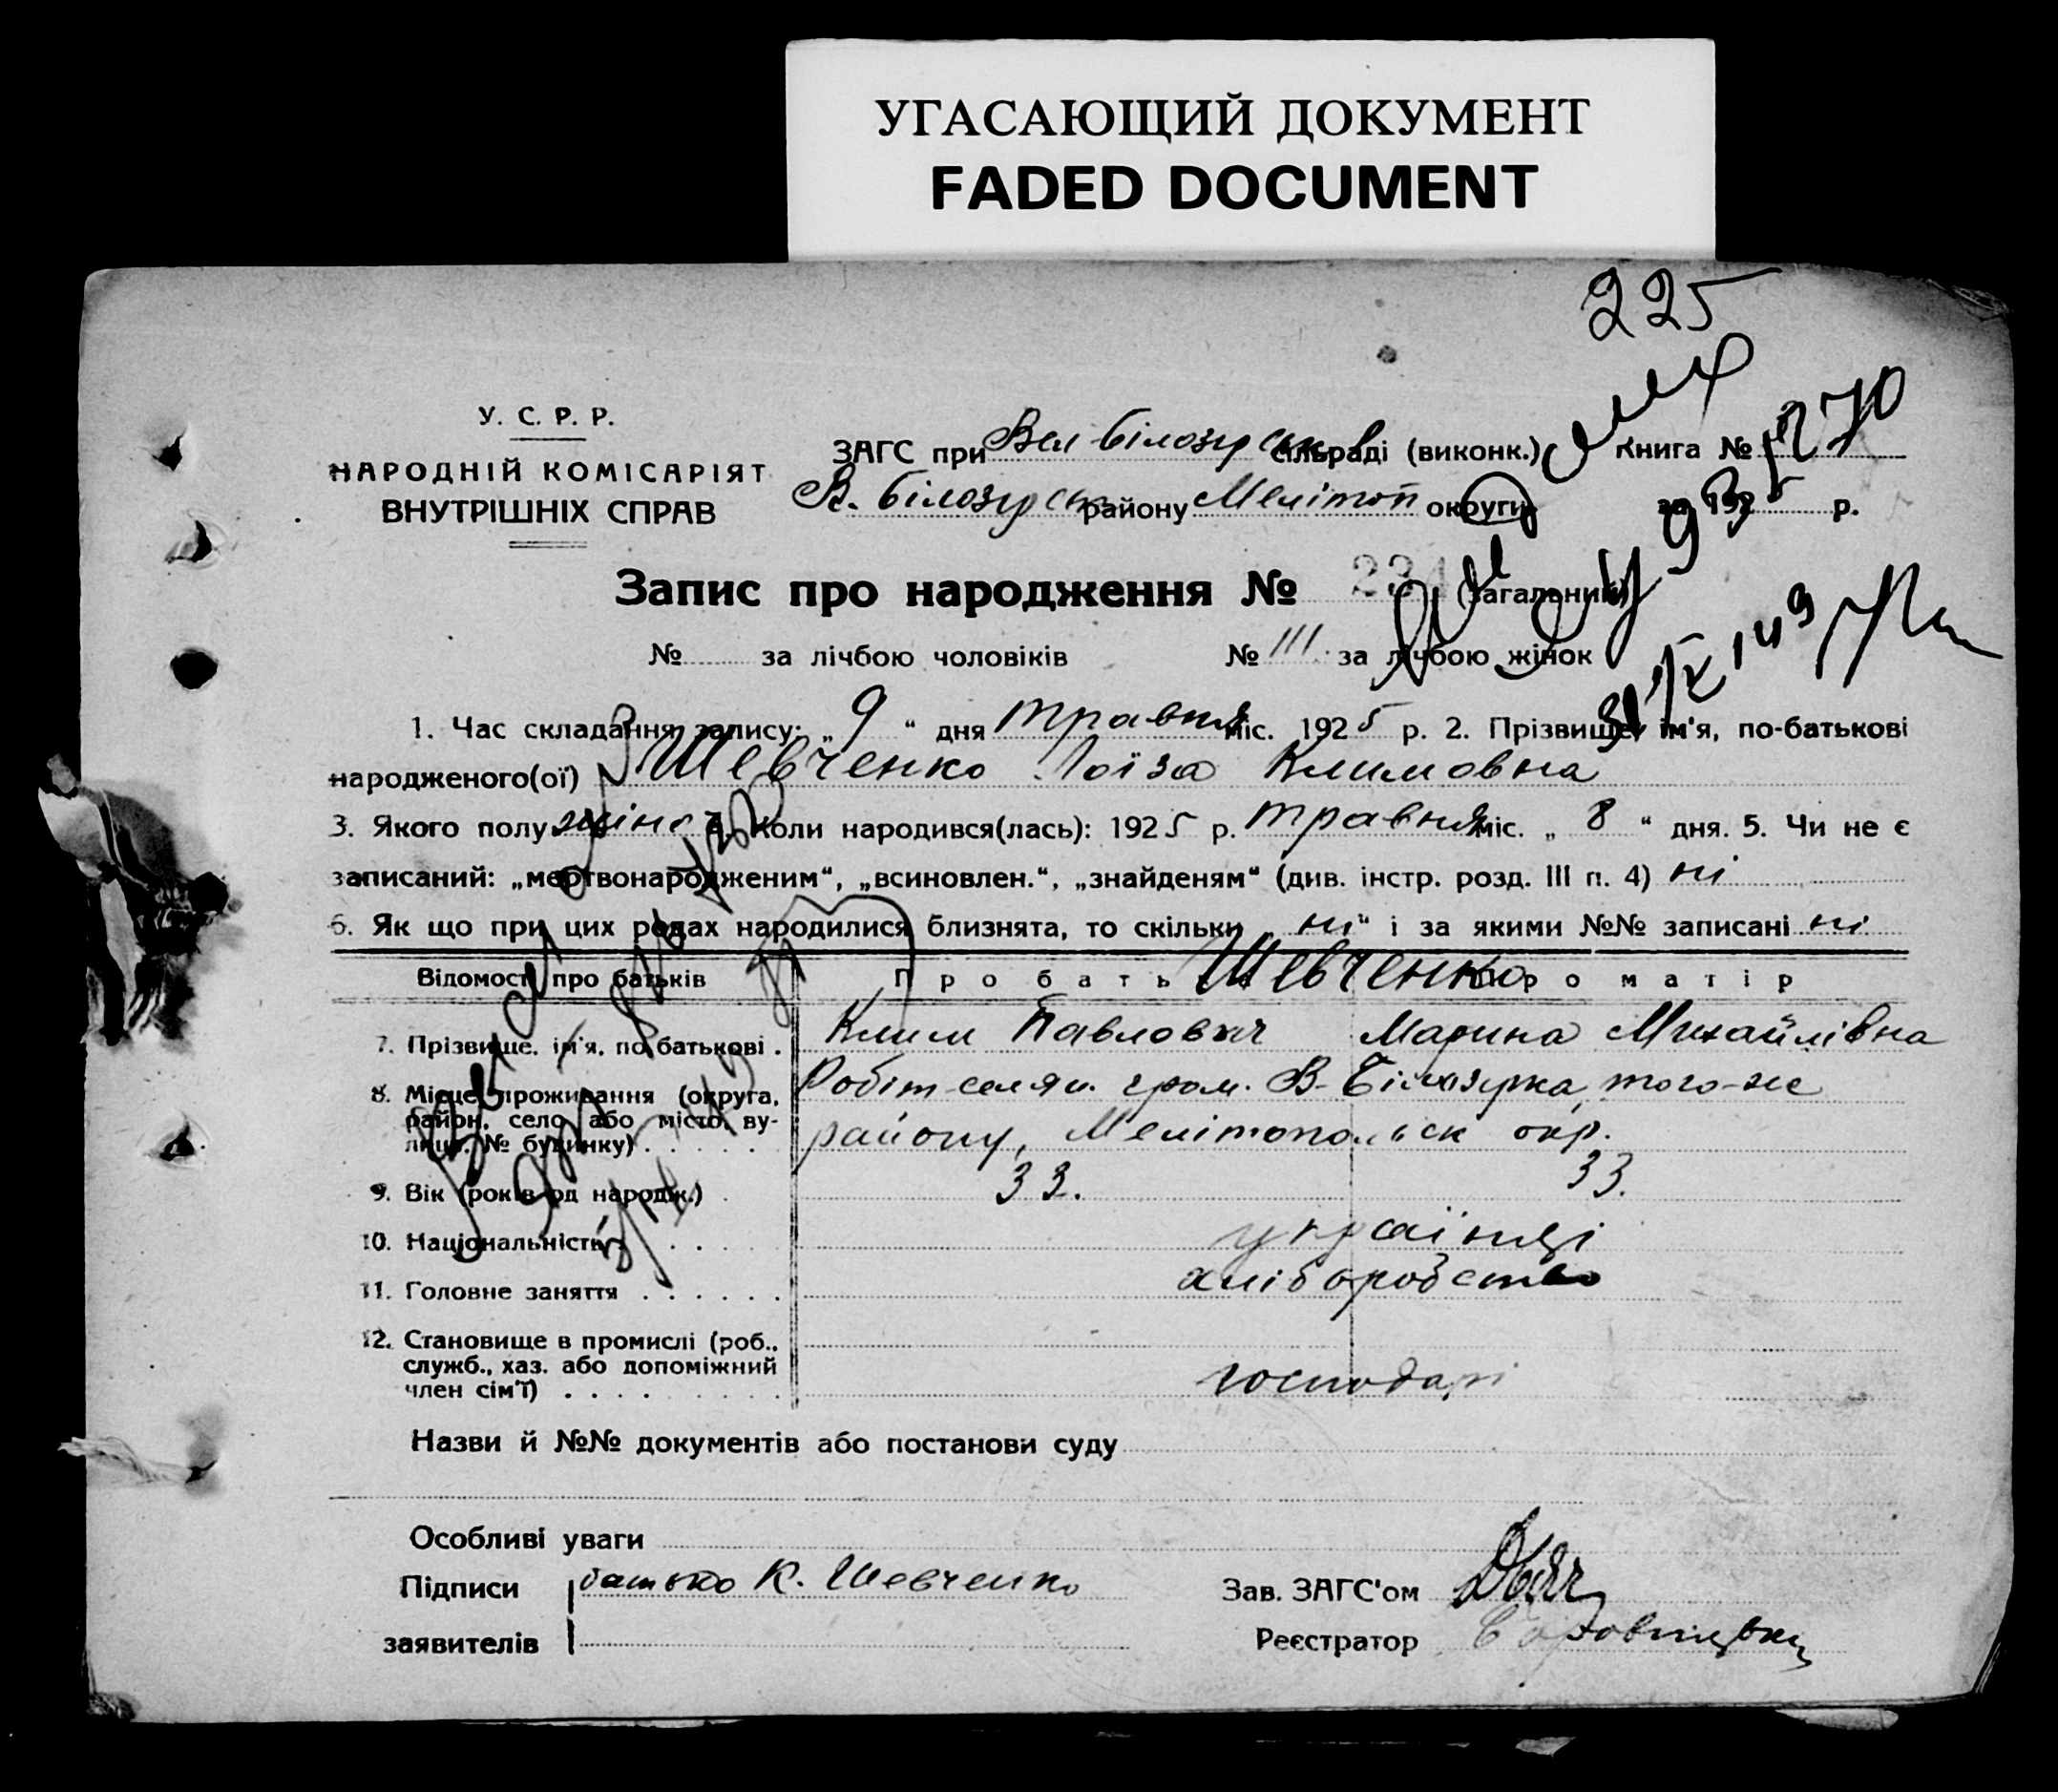 УГАСАЮЩИЙ ДОКУМЕНТ
FADED DOCUMENT
225
У. С. Р. Р.
НАРОДНІЙ КОМІСАРІЯТ
ВНУТРІШНІХ СПРАВ
ЗАГС при Вел Білозірськ сільраді (виконк.) Книга №
В. Білозірськ району Мелітоп округи за 1925 р.
Запис про народження № (загальний)
№ за лічбою чоловіків № 111 за лічбою жінок
1. Час складання запису: „ 9 “ дня травня міс. 1925 р. 2. Прізвище, ім'я, по-батькові
народженого(ої) Шевченко Лоїза Климовна
3. Якого полу жіноч 4. Коли народився(лась): 1925 р. травня міс. „ 8 “ дня. 5. Чи не є
записаний: „мертвонародженим“, „всиновлен.“, „знайденям“ (див. інстр. розд. III п. 4) ні
6. Як що при цих родах народилися близнята, то скільки „ ні “ і за якими №№ записані ні
Відомості про батьків Про батька Шевченко Про матір
7. Прізвище, ім'я, по батькові . Клим Павлович Марина Михайлівна
8. Місце проживання (округа, район, село або місто, вулиця, № будинку) . . . . . Робіт-селян. гром. В-Білозірка, того-же
району, Мелітопольськ окр.
9. Вік (років од народж.) . 33. 33.
10. Національність . . . . українці
11. Головне заняття . . . . . . хліборобство
12. Становище в промислі (роб., служб., хаз. або допоміжний член сім'ї) . . . . . . . . . господарі
Назви й №№ документів або постанови суду
Особливі уваги
Підписи батько К. Шевченко Зав. ЗАГС'ом
заявителів Реєстратор